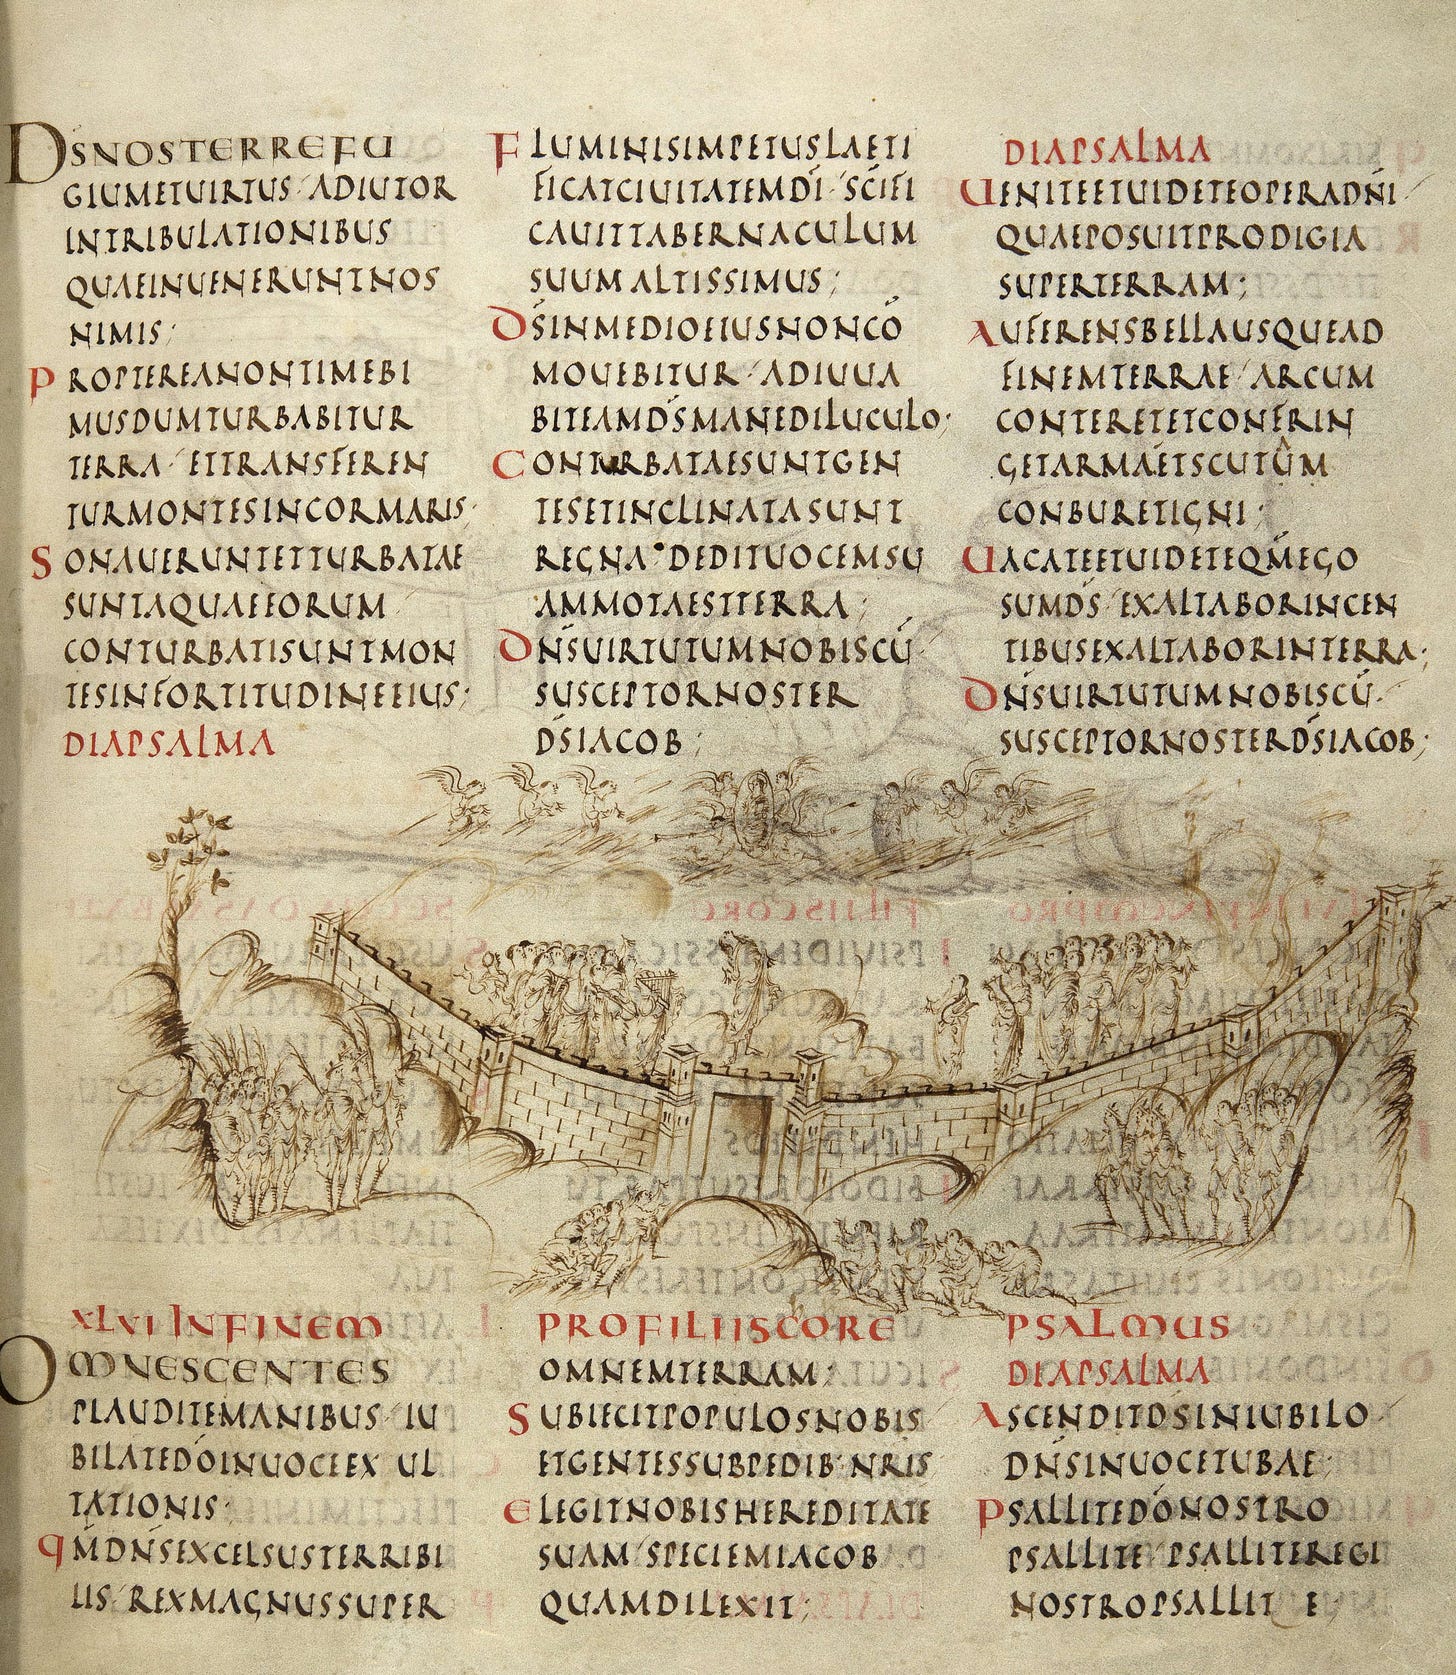 DSNOSTERREFU
GIUMETUIRTUS ADIUTOR
INTRIBULATIONIBUS
QUAEINUENERUNTNOS
NIMIS;
PROPTEREANONTIMEBI
MUSDUMTURBABITUR
TERRA ETTRANSFEREN
TURMONTESINCORMARIS;
SONAUERUNTETTURBATAE
SUNTAQUAEEORUM
CONTURBATISUNTMON
TESINFORTITUDINEEIUS;
DIAPSALMA
FLUMINISIMPETUSLAETI
FICATCIUITATEMDI SCIFI
CAUITTABERNACULUM
SUUMALTISSIMUS;
DSINMEDIOEIUSNONCO
MOUEBITUR ADIUUA
BITEAMDSMANEDILUCULO;
CONTURBATAESUNTGEN
TESETINCLINATASUNT
REGNA DEDITUOCEMSU
AMMOTAESTTERRA;
DNSUIRTUTUMNOBISCU
SUSCEPTORNOSTER
DSIACOB;
DIAPSALMA
UENITEETUIDETEOPERADNI
QUAEPOSUITPRODIGIA
SUPERTERRAM;
AUFERENSBELLAUSQUEAD
FINEMTERRAE ARCUM
CONTERETETCONFRIN
GETARMAETSCUTUM
CONBURETIGNI;
UACATEETUIDETEQMEGO
SUMDS EXALTABORINGEN
TIBUSEXALTABORINTERRA;
DNSUIRTUTUMNOBISCU
SUSCEPTORNOSTERDSIACOB;
XLVI INFINEM
OMNESGENTES
PLAUDITEMANIBUS IU
BILATEDOINUOCEEXUL
TATIONIS;
QMDNSEXCELSUSTERRIBI
LIS REXMAGNUSSUPER
PROFILIISCORE
OMNEMTERRAM;
SUBIECITPOPULOSNOBIS
ETGENTESSUBPEDIB NRIS
ELEGITNOBISHEREDITATE
SUAM SPECIEMIACOB
QUAMDILEXIT;
PSALMUS
DIAPSALMA
ASCENDITDSINIUBILO
DNSINUOCETUBAE;
PSALLITEDONOSTRO
PSALLITE PSALLITEREGI
NOSTROPSALLITE;